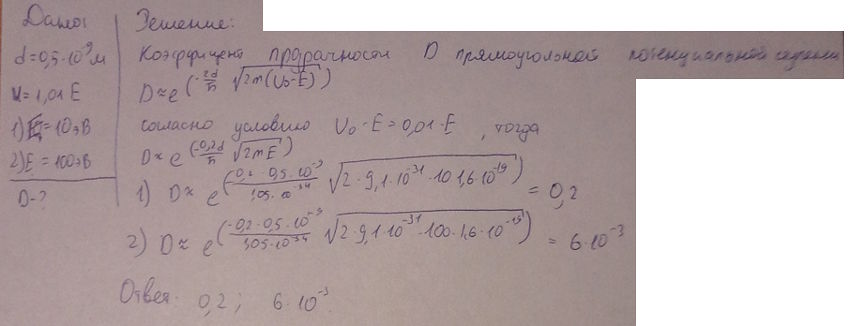 Дано:
d=0,5·10⁻⁹м
U=1,01 E
1) E=10эВ
2) E=100эВ
D-?
Решение:
Коэффициент прозрачности D прямоугольной потенциальной
D≈e^(-2d/ħ √(2m(U₀-E)))
согласно условию U₀-E=0,01·E, тогда
D≈e^(-0,2d/ħ √(2mE))
1) D≈ e^((-0,2·0,5·10⁻⁹)/(1,05·10⁻³⁴) √(2·9,1·10⁻³¹·10·1,6·10⁻¹⁹)) = 0,2
2) D≈ e^((-0,2·0,5·10⁻⁹)/(1,05·10⁻³⁴) √(2·9,1·10⁻³¹·100·1,6·10⁻¹⁹)) = 6·10⁻³
Ответ: 0,2; 6·10⁻³